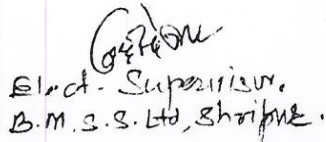 Elect. Supervisor.
B.M.S.S. Ltd, Shripur.